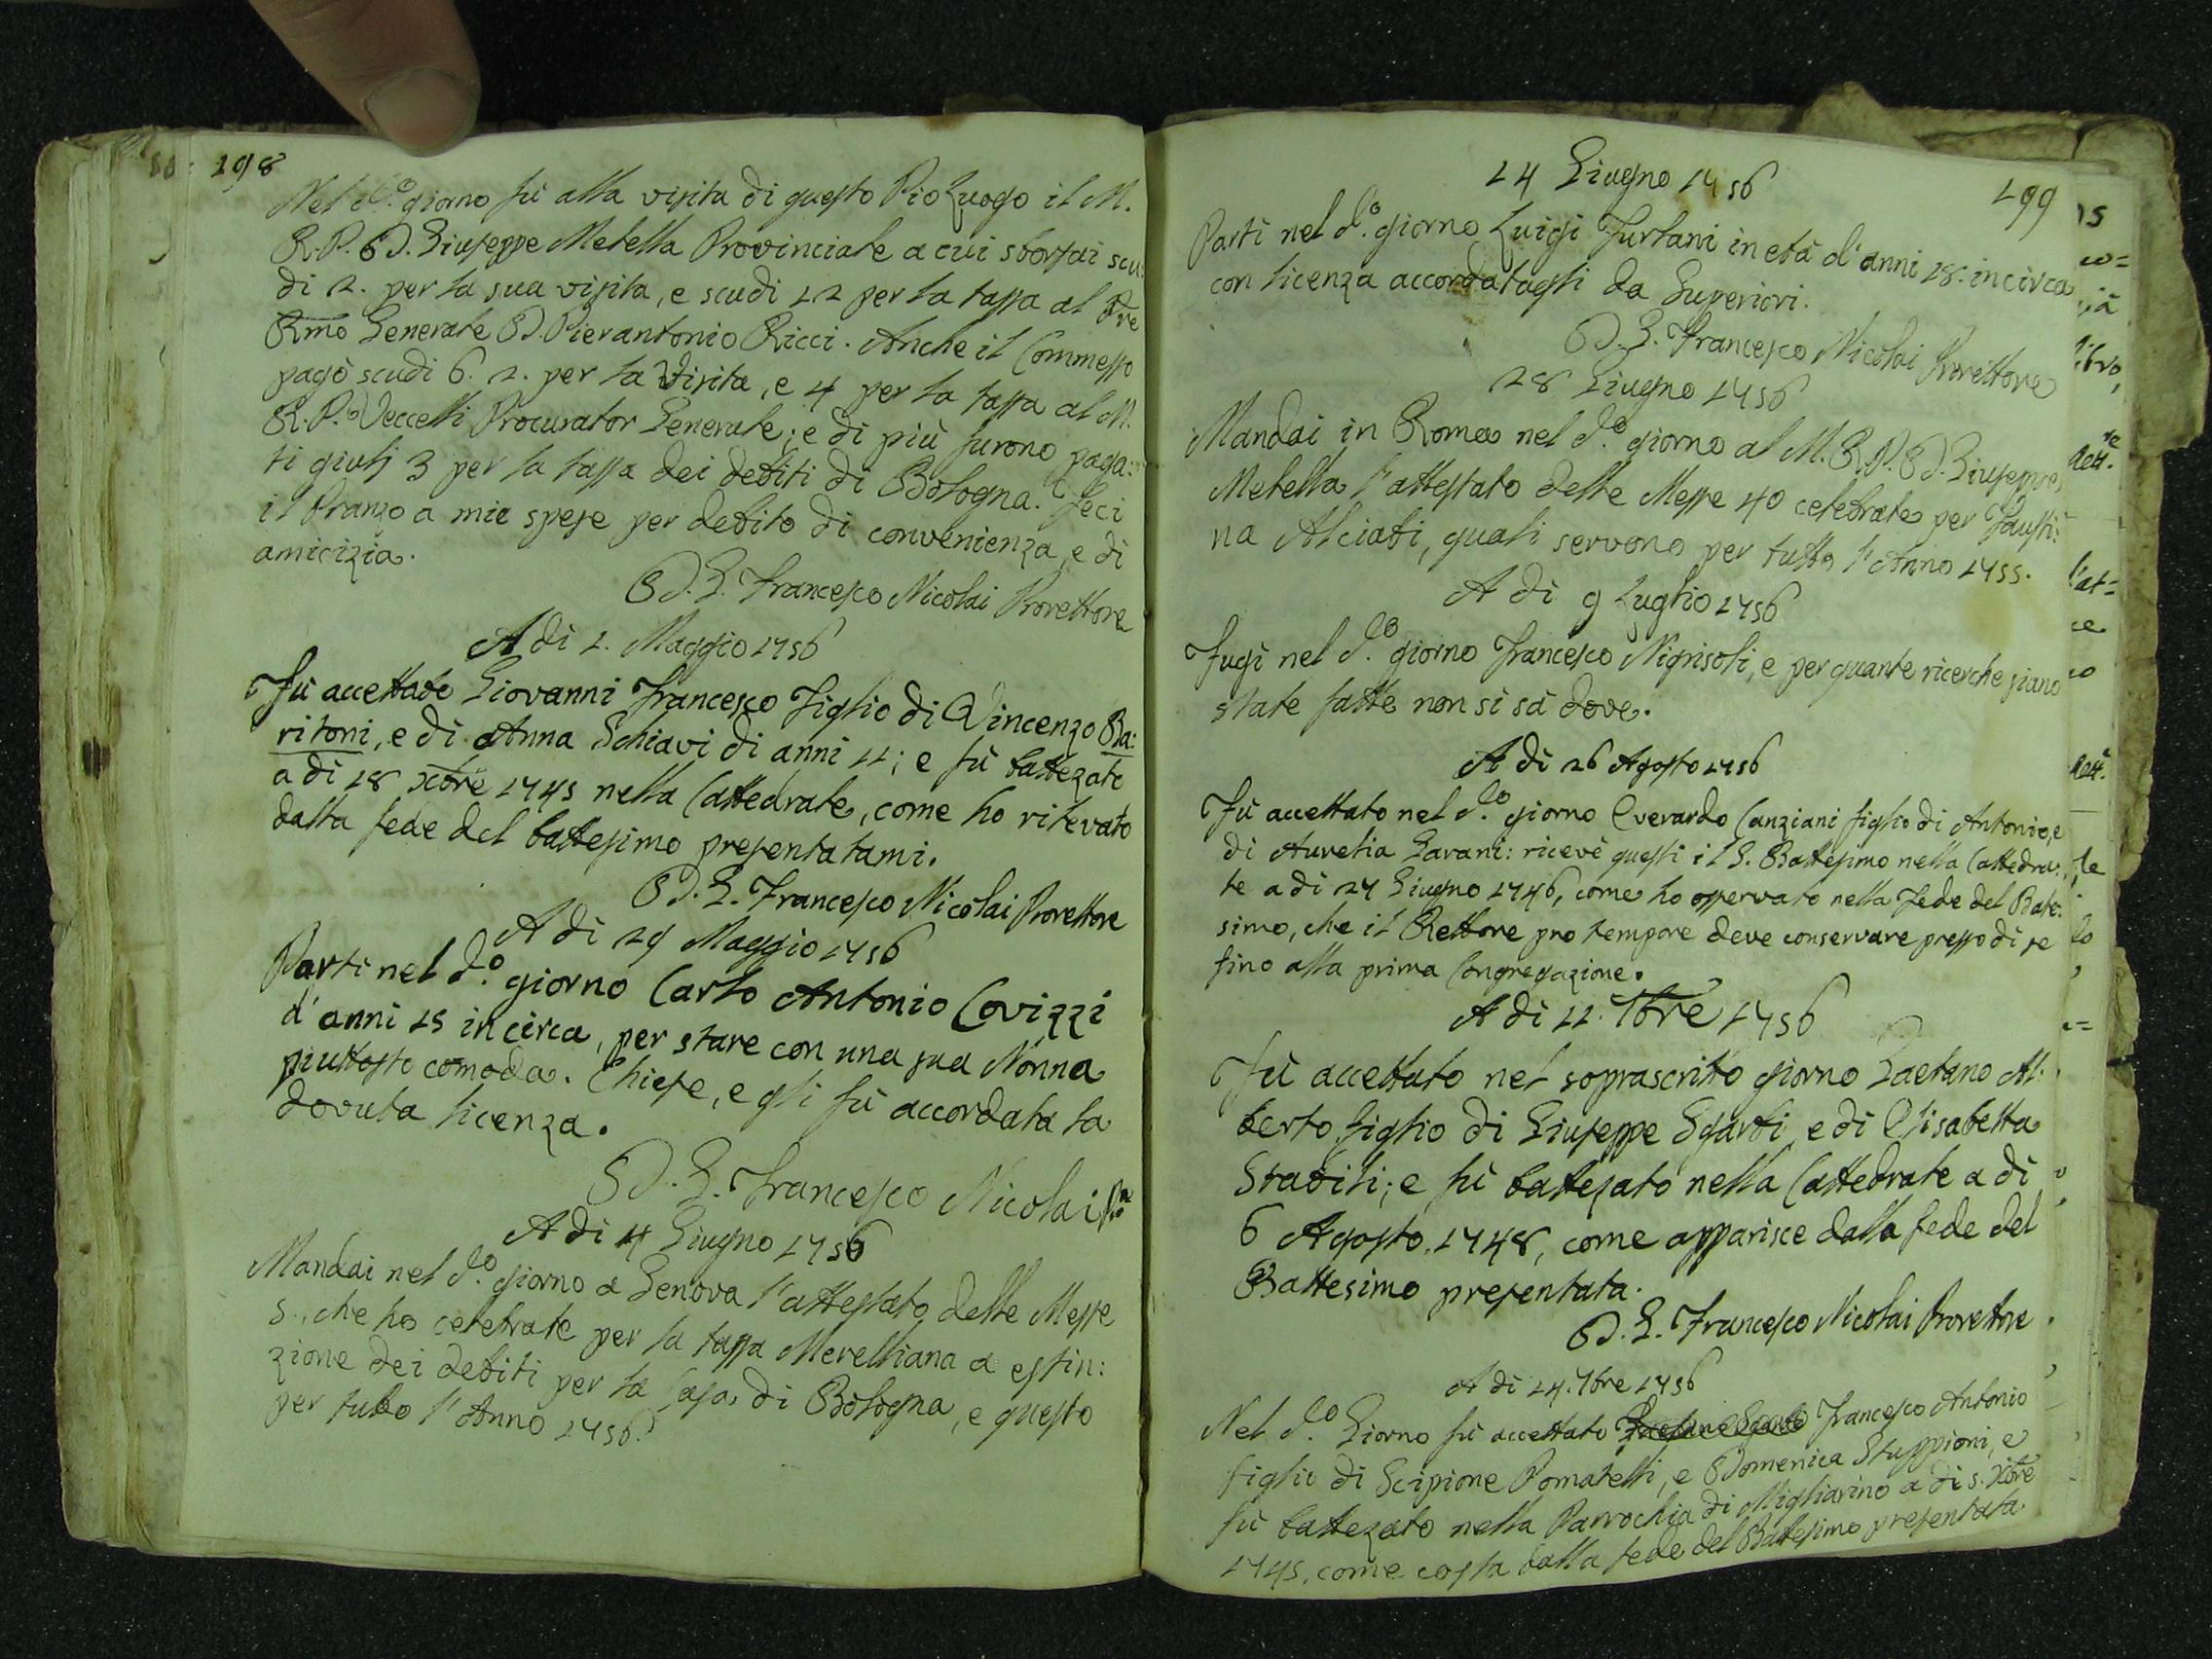 198
Nel d.º giorno fù alla visita di questo Pio Luogo il M.
R. P. D. Giuseppe Metella Provinciale a cui sborsai scu:
di 2. per la sua visita, e scudi 12 per la tassa al Pre
Rmo Generale D. Pierantonio Ricci. Anche il Commesso
pagò scudi 6. 2. per la Visita, e 4 per la tassa al M.
R. P. Veccelli Procurator Generale; e di più furono paga:
ti giulj 3 per la tassa dei debiti di Bologna. Feci
il Pranzo a mie spese per debito di convenienza, e di
amicizia.
D. G. Francesco Nicolai Prorettore
A di 1. Maggio 1756
Fù accettato Giovanni Francesco Figlio di Vincenzo Ba:
ritoni, e di Anna Schiavi di anni 11; e fù battezato
a di 18 Xbre 1745 nella Cattedrale, come ho rilevato
dalla fede del battesimo presentatami.
D. G. Francesco Nicolai Prorettore
A di 29 Maggio 1756
Partì nel d.º giorno Carlo Antonio Covizzi
d'anni 15 in circa, per stare con una sua Nonna
piuttosto comoda. Chiese, e gli fù accordata la
dovuta licenza.
D. G. Francesco Nicolai
A di 4 Giugno 1756
Mandai nel d.º giorno a Genova l'attestato delle Messe
5., che ho celebrate per la tassa Merelliana a estin:
zione dei debiti per la Casa di Bologna, e questo
per tutto l'Anno 1756.
199
14 Giugno 1756
Partì nel d.º giorno Luigi Furlani in età d'anni 18. in circa
con licenza accordatagli da Superiori.
D. G. Francesco Nicolai Prorettore
28 Giugno 1756
Mandai in Roma nel d.º giorno al M. R. P. D. Giuseppe
Metella l'attestato delle Messe 40 celebrate per Fausti:
na Alciati, quali servono per tutto l'Anno 1755.
A di 9 Luglio 1756
Fugì nel d.º giorno Francesco Nigrisoli, e per quante ricerche siano
state fatte non si sà dove.
A di 26 Agosto 1756
Fù accettato nel d.º giorno Everardo Canziani figlio di Antonio, e
di Aurelia Gavani: ricevè questi il S. Battesimo nella Cattedra:
le a di 27 Giugno 1746, come ho osservato nella Fede del Bate:
simo, che il Rettore pro tempore deve conservare presso di se
fino alla prima Congregazione.
A di 11. 7bre 1756
Fù accettato nel soprascritto giorno Gaetano Al:
berto figlio di Giuseppe Sgarbi, e di Elisabetta
Stabili; e fù battezato nella Cattedrale a di
6 Agosto 1748, come apparisce dalla fede del
Battesimo presentata.
D. G. Francesco Nicolai Prorettore
A di 14. 7bre 1756
Nel d.º Giorno fù accettato Francesco Antonio
figlio di Scipione Pomatelli, e Domenica Stuppioni, e
fù battezato nella Parrochia di Migliarino a di 5. Xbre
1745, come costa dalla fede del Battesimo presentata.